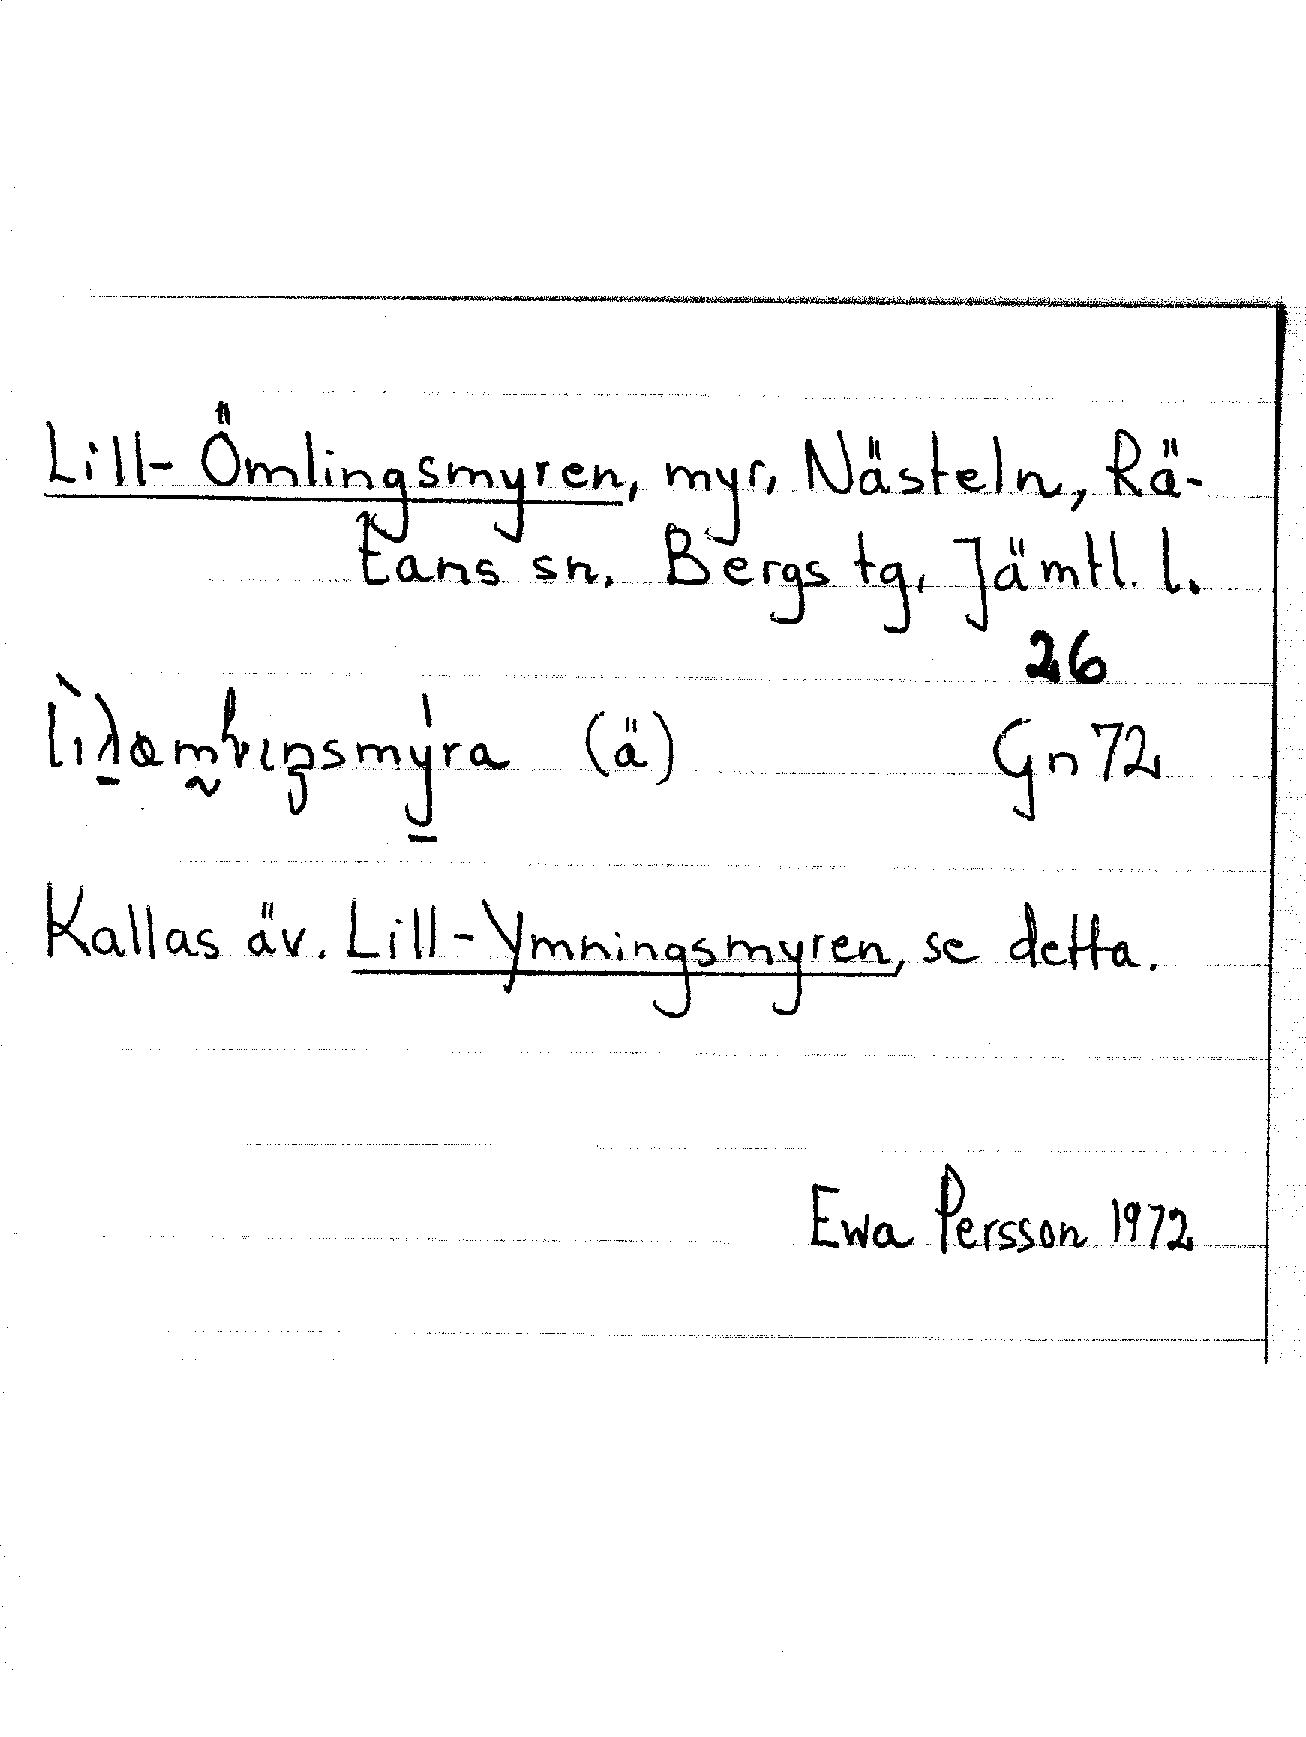 Lill-Ömlingsmyren, myr, Nästeln, Rä-
tans sn. Bergs tg, Jämtl. l.
26
(ä) Gn 72
Kallas äv. Lill-Ymningsmyren, se detta.
Ewa Persson 1972